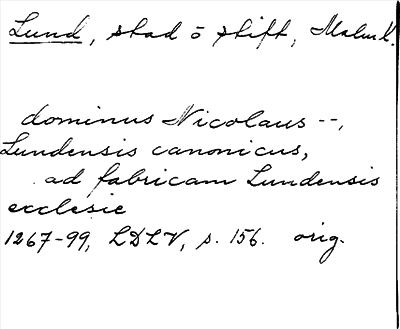 Lund, stad o stift, Malm l.
dominus Nicolaus --,
Lundensis canonicus,
ad fabricam Lundensis
ecclesie
1267-99, LDLV, s. 156. orig.